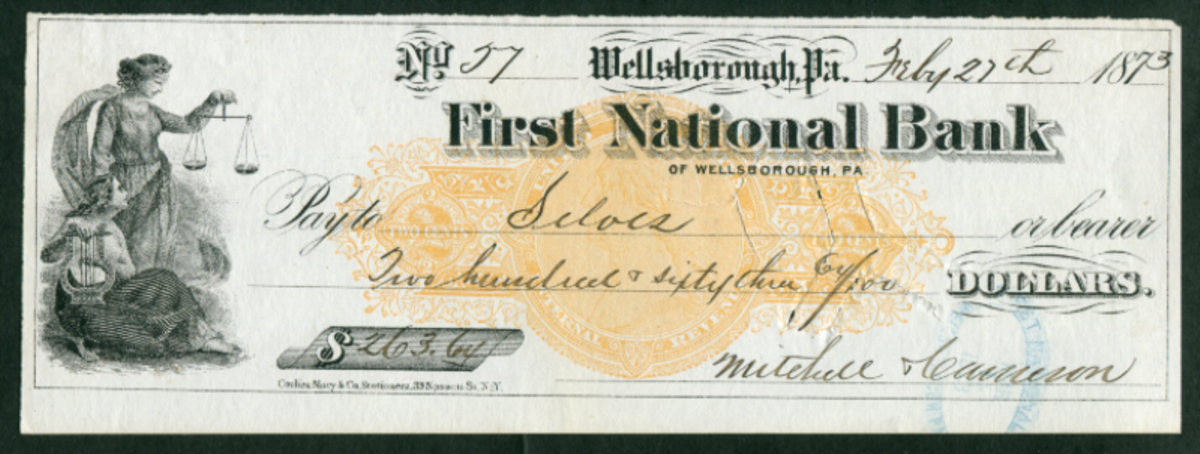 No 57 Wellsborough, Pa. Feby 27th 1873
First National Bank
OF WELLSBOROUGH, PA
Pay to Selves or bearer
Two hundred & sixty three 64/100 DOLLARS.
$ 263.64
Mitchell & Cameron
& Co. Stationers, 39 St. N.Y.
TWO CENTS
INTERNAL REVENUE